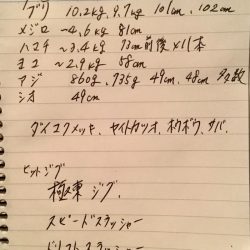 ブリ 10.2kg、9.7kg 101cm、102cm
メジロ ~4.6kg 81cm
ハマチ ~3.4kg 73cm前後×11本
ヨコ ~2.9kg 58cm
アジ 860g、735g 49cm、48cm 多数
シオ 49cm
ダイユクメッキ、セイトカツオ、ホウボウ、サバ、
ヒットジグ
極東ジグ、
スピードスラッシャー